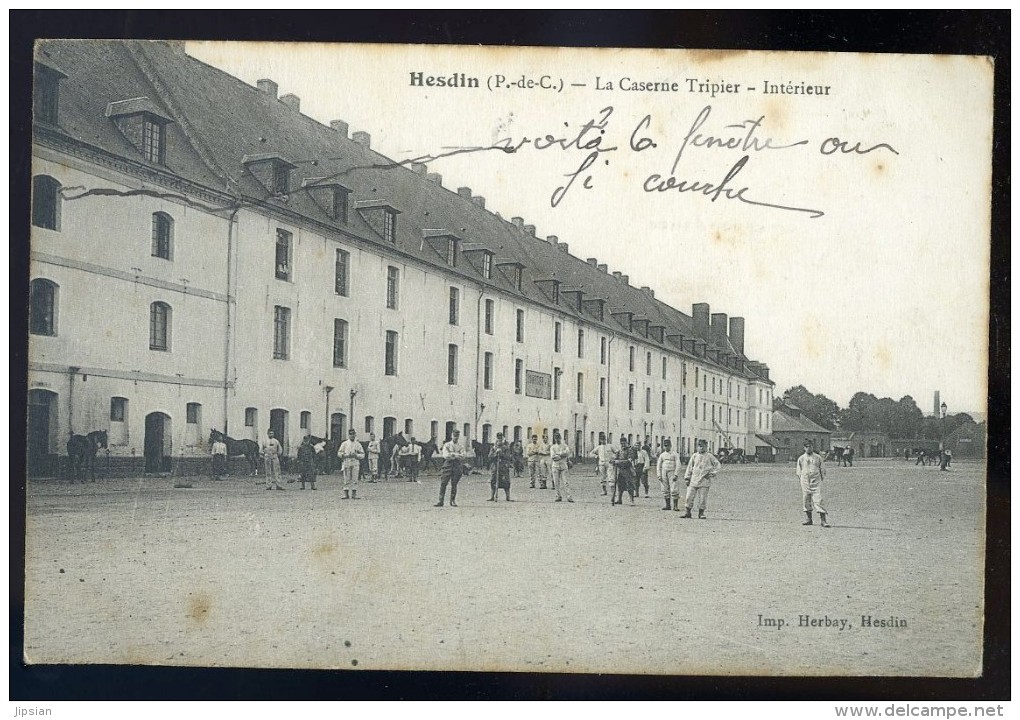 Hesdin (P.-de-C.) — La Caserne Tripier - Intérieur
voità la fenêtre ou
Ji couche
QUARTIER
Imp. Herbay, Hesdin
Jipsian
www.delcampe.net